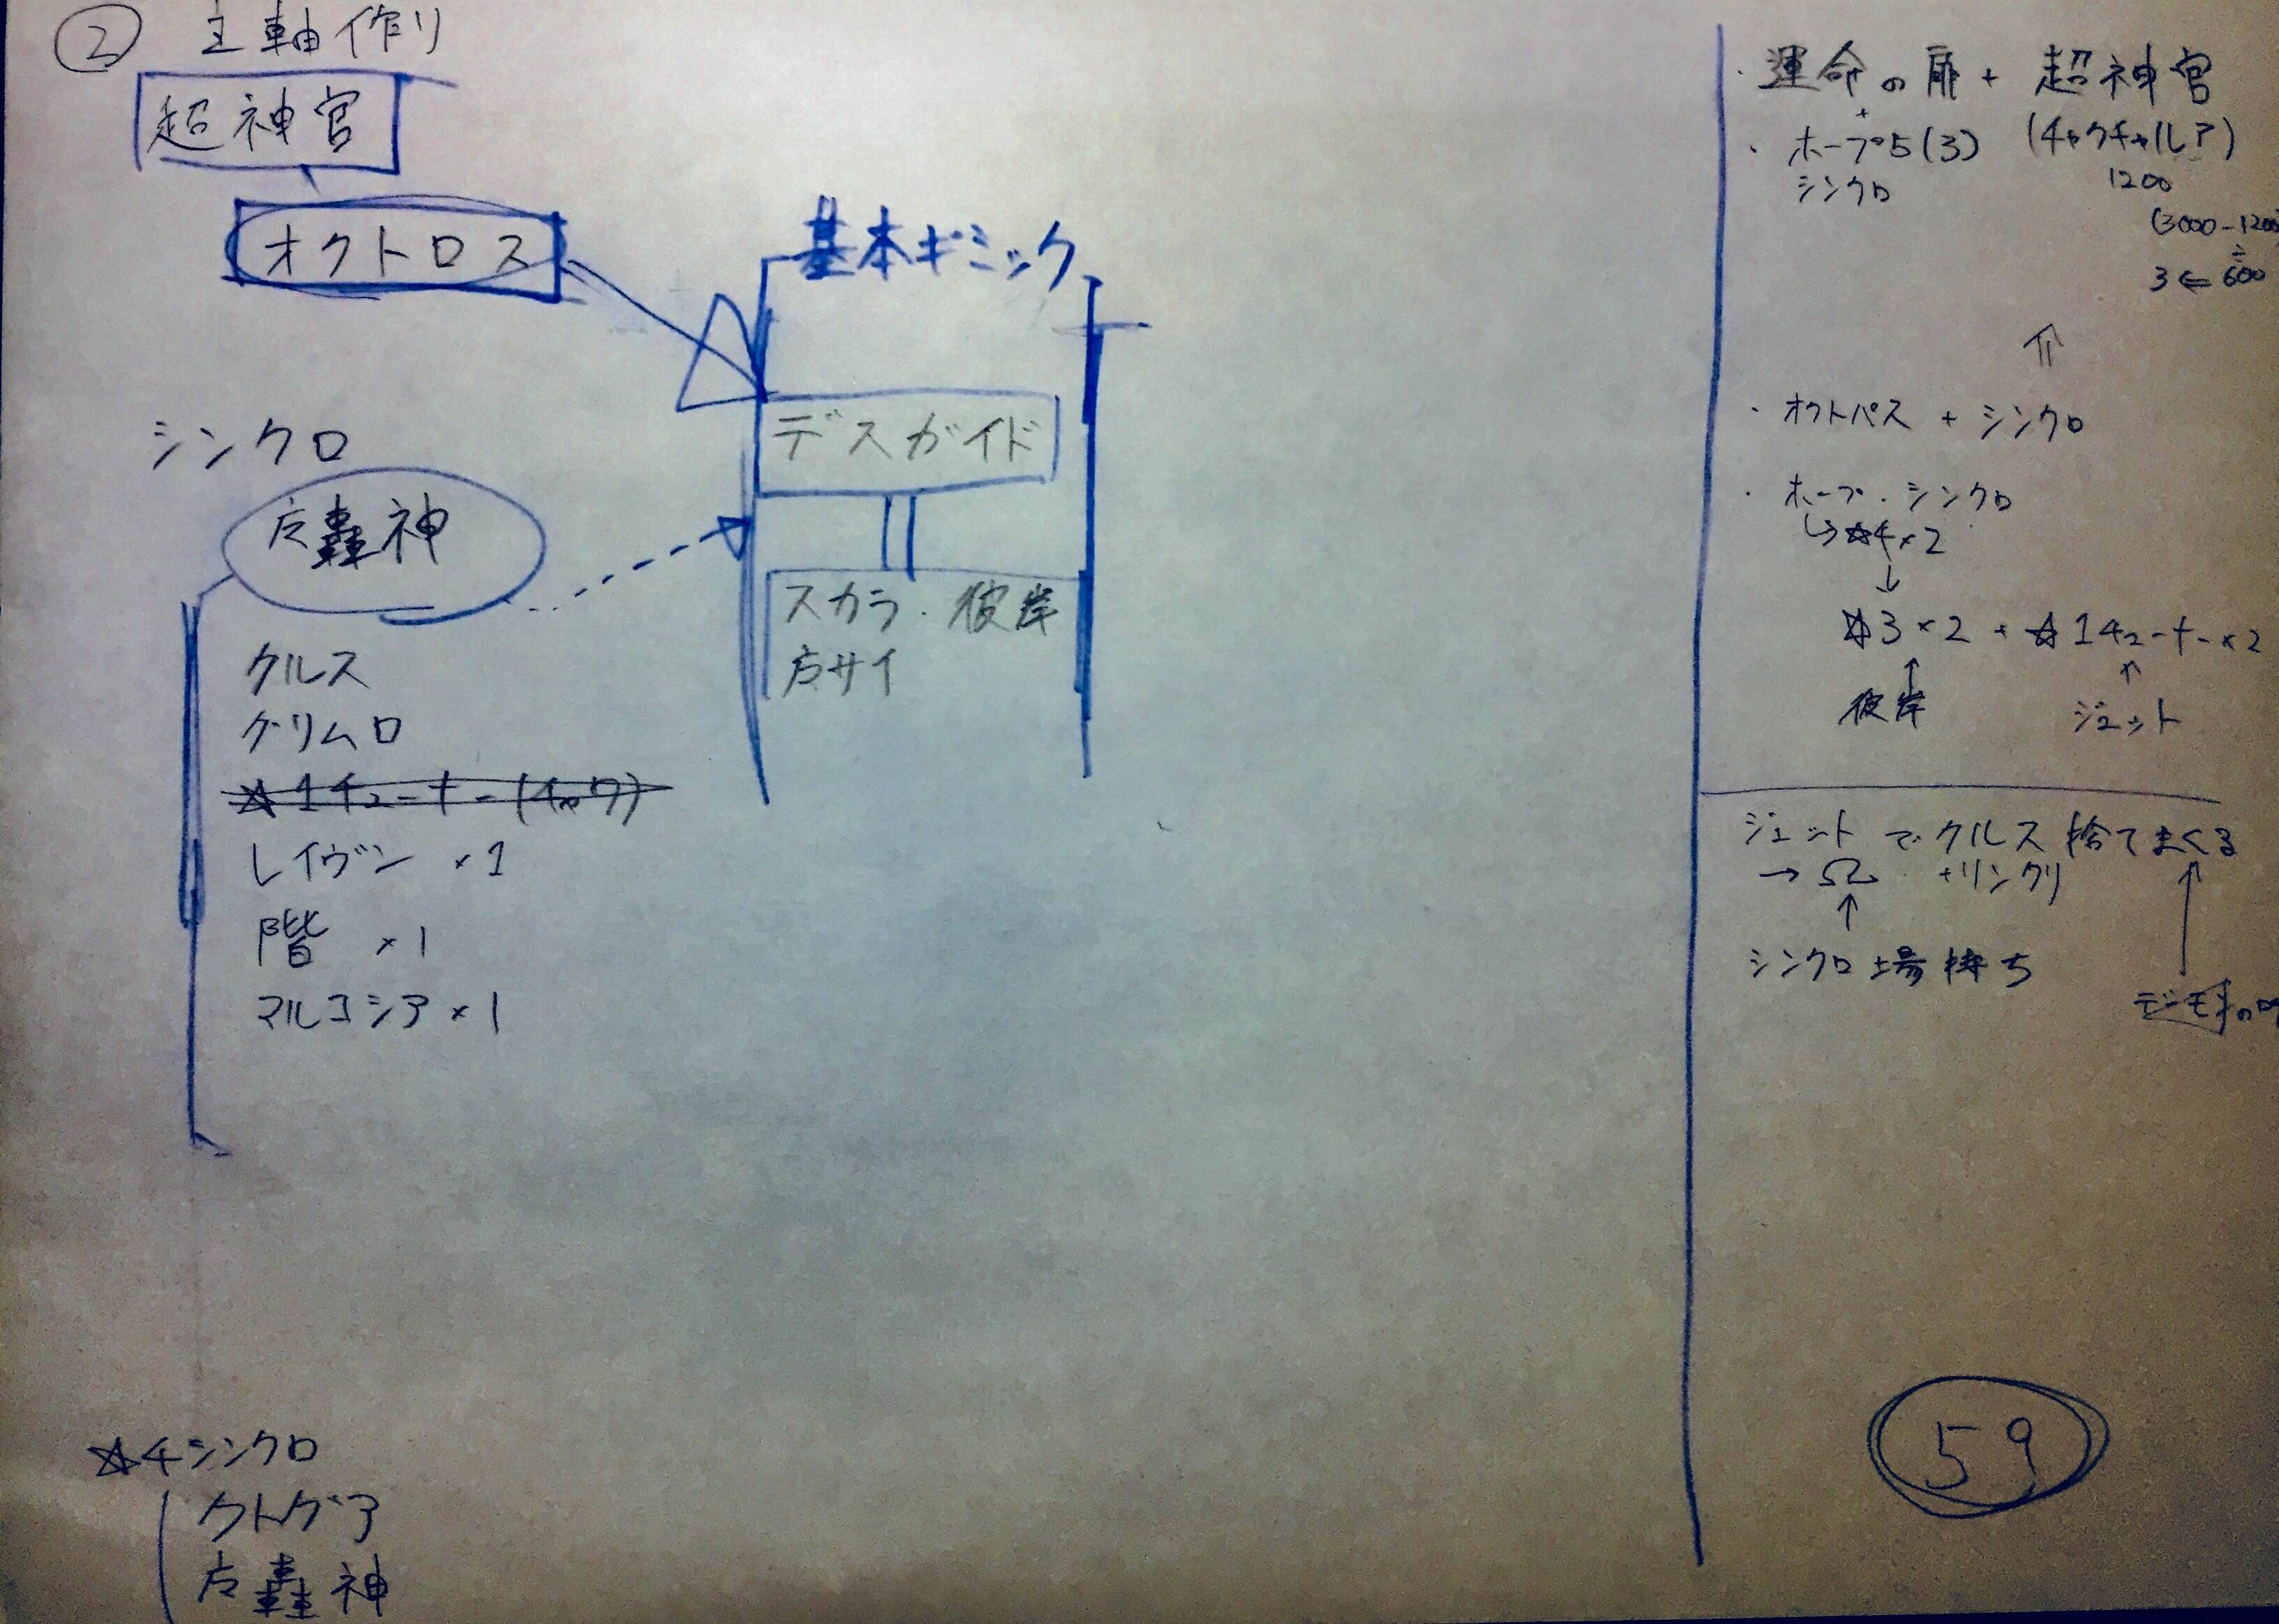 ② 主軸作り
超神官
オクトロス
基本ギミック
デスガイド
スカラ・彼岸
シンクロ
轟神
クルス
グリムロ
☆1チューナー(チャワ)
レイヴン ×1
階 ×1
マルコシア×1
☆4シンクロ
クトグア
轟神
・運命の扉 + 超神官
+
・ホープ5(3) (チャクチャルア)
シンクロ 1200
(3000-1200)
÷
3 ⇐ 600
⇑
・オクトパス + シンクロ
・ホープ・シンクロ
↳☆4×2
↓
☆3×2 + ☆1チューナー×2
↑ ↑
彼岸 ジェット
ジェットでクルス捨てまくる
→Ω +リンクリ
↑
シンクロ場持ち
59